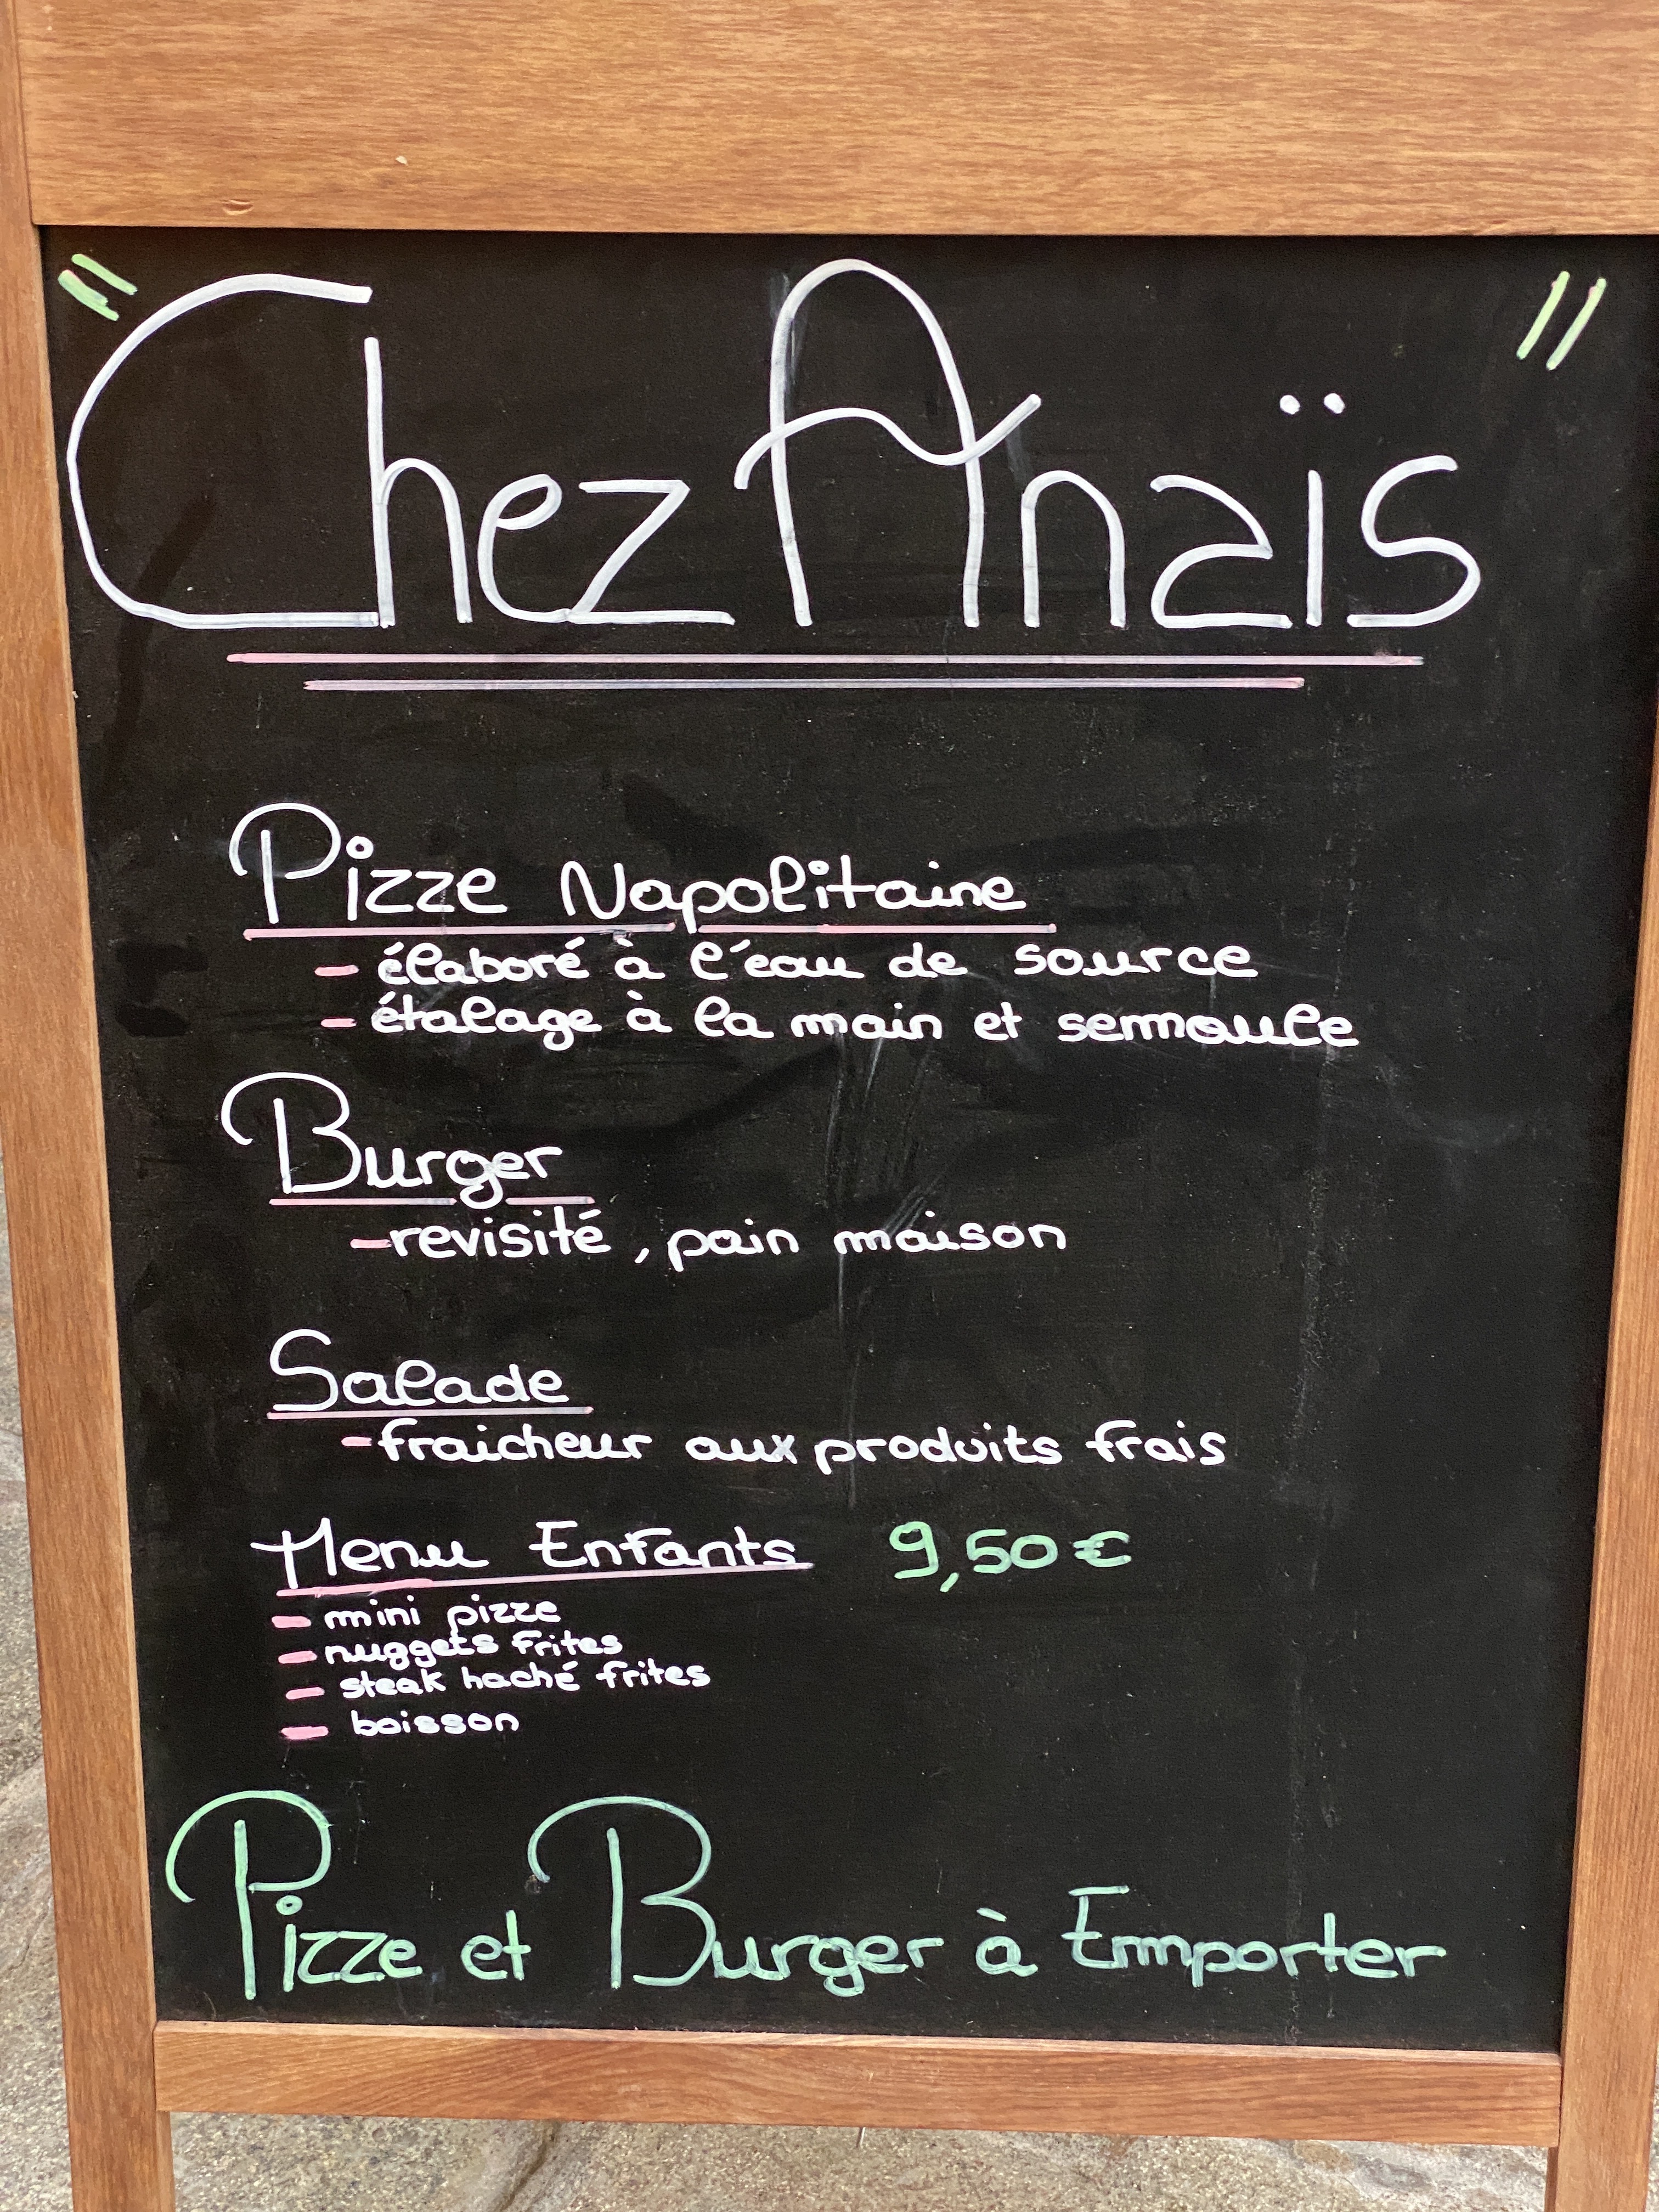 "Chez Anaïs"
Pizze Napolitaine
- élaboré à l'eau de source
- étalage à la main et semoule
Burger
- revisité, pain maison
Salade
- fraicheur aux produits frais
Menu Enfants 9,50€
- mini pizze
- nuggets frites
- steak haché frites
- boisson
Pizze et Burger à Emporter